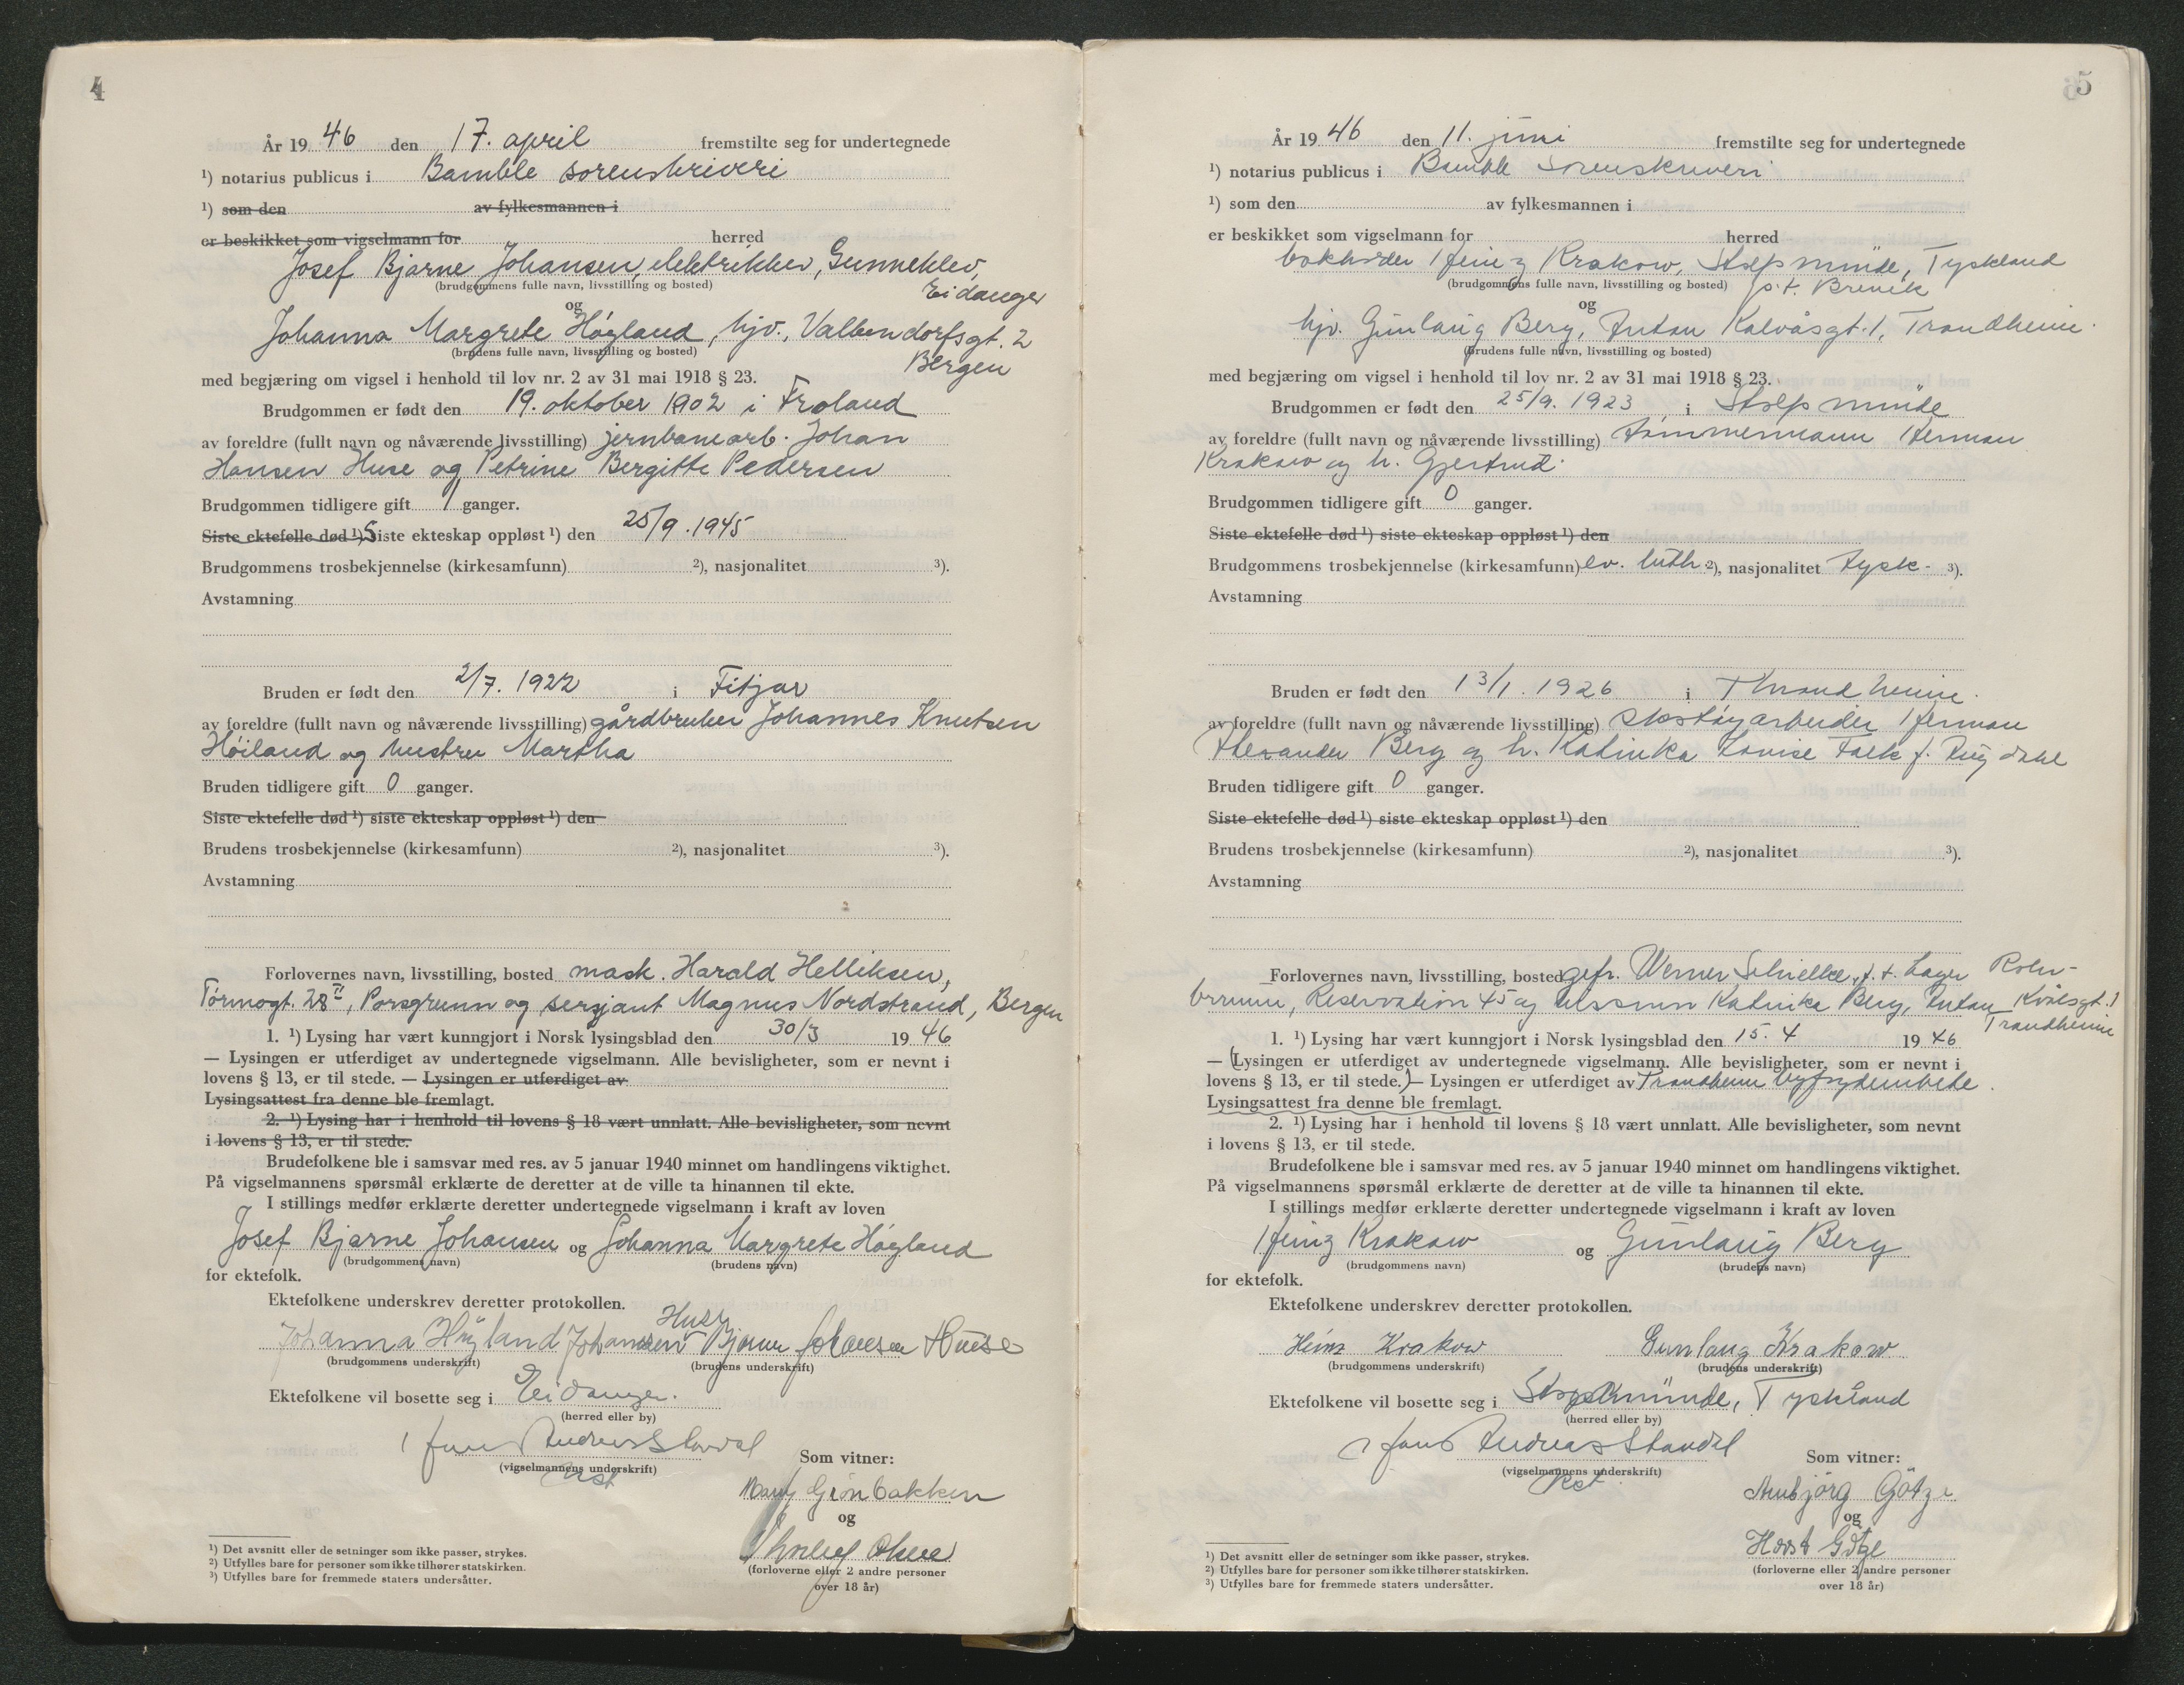 4
År 19 46 den 17. april fremstilte seg for undertegnede
¹) notarius publicus i Bamble sorenskriveri
¹) som den av fylkesmannen i
er beskikket som vigselmann for herred
Josef Bjarne Johansen, elektriker, Gunneklev,
(brudgommens fulle navn, livsstilling og bosted) Eidanger
og
Johanna Margrete Høyland, hjv., Valkendorfsgt. 2
(brudens fulle navn, livsstilling og bosted) Bergen
med begjæring om vigsel i henhold til lov nr. 2 av 31 mai 1918 § 23.
Brudgommen er født den 19. oktober 1902 i Froland
av foreldre (fullt navn og nåværende livsstilling) jernbanearb. Johan
Hansen Huse og Petrine Bergitte Pedersen
Brudgommen tidligere gift 1 ganger.
Siste ektefelle død ¹) Siste ekteskap oppløst ¹) den 25/9. 1945
Brudgommens trosbekjennelse (kirkesamfunn) ²), nasjonalitet ³).
Avstamning
Bruden er født den 2/7. 1922 i Fitjar
av foreldre (fullt navn og nåværende livsstilling) gårdbruker Johannes Knutsen
Høiland og hustru Martha
Bruden tidligere gift 0 ganger.
Siste ektefelle død ¹) siste ekteskap oppløst ¹) den
Brudens trosbekjennelse (kirkesamfunn) ²), nasjonalitet ³).
Avstamning
Forlovernes navn, livsstilling, bosted mask. Harald Helliksen,
Tormogt. 28 II, Porsgrunn og sersjant Magnus Nordstrand, Bergen
1. ¹) Lysing har vært kunngjort i Norsk lysingsblad den 30/3 19 46
— Lysingen er utferdiget av undertegnede vigselmann. Alle bevisligheter, som er nevnt i
lovens § 13, er til stede. — Lysingen er utferdiget av
Lysingsattest fra denne ble fremlagt.
2. ¹) Lysing har i henhold til lovens § 18 vært unnlatt. Alle bevisligheter, som nevnt
i lovens § 13, er til stede.
Brudefolkene ble i samsvar med res. av 5 januar 1940 minnet om handlingens viktighet.
På vigselmannens spørsmål erklærte de deretter at de ville ta hinannen til ekte.
I stillings medfør erklærte deretter undertegnede vigselmann i kraft av loven
Josef Bjarne Johansen og Johanna Margrete Høyland
(brudgommens navn) (brudens navn)
for ektefolk.
Ektefolkene underskrev deretter protokollen.
Huse
Johanna Høyland Johansen Bjarne Johansen Huse
(brudgommens underskrift) (brudens underskrift)
Ektefolkene vil bosette seg i Eidanger.
(herred eller by)
Andreas
(vigselmannens underskrift)
Som vitner:
Grønbakken
og
Olsen
(forloverne eller 2 andre personer
over 18 år)
¹) Det avsnitt eller de setninger som ikke passer, strykes.
²) Utfylles bare for personer som ikke tilhører statskirken.
³) Utfylles bare for fremmede staters undersåtter.
5
År 19 46 den 11. juni fremstilte seg for undertegnede
¹) notarius publicus i Bamble Sorenskriveri
¹) som den av fylkesmannen i
er beskikket som vigselmann for herred
bokholder Heinz Krakow, Stolpmünde, Tyskland
(brudgommens fulle navn, livsstilling og bosted) p.t. Brevik
og
hjv. Gunlaug Berg, Anton Kalvåsgt. 1, Trondheim.
(brudens fulle navn, livsstilling og bosted)
med begjæring om vigsel i henhold til lov nr. 2 av 31 mai 1918 § 23.
Brudgommen er født den 25/9. 1923 i Stolpmünde
av foreldre (fullt navn og nåværende livsstilling) tømmermann Herman
Krakow og h. Gjertrud.
Brudgommen tidligere gift 0 ganger.
Siste ektefelle død ¹) siste ekteskap oppløst ¹) den
Brudgommens trosbekjennelse (kirkesamfunn) ev. luth. ²), nasjonalitet tysk. ³).
Avstamning
Bruden er født den 13/1. 1926 i Trondheim.
av foreldre (fullt navn og nåværende livsstilling) skotøyarbeider Herman
Alexander Berg og h. Katinka Lovise Falk f.
Bruden tidligere gift 0 ganger.
Siste ektefelle død ¹) siste ekteskap oppløst ¹) den
Brudens trosbekjennelse (kirkesamfunn) ²), nasjonalitet ³).
Avstamning
Forlovernes navn, livsstilling, bosted gefr. Werner p.t. Lager
Reservation 45 og Katinka Berg, Anton Kvålsgt. 1
Trondheim
1. ¹) Lysing har vært kunngjort i Norsk lysingsblad den 15. 4 19 46
— (Lysingen er utferdiget av undertegnede vigselmann. Alle bevisligheter, som er nevnt i
lovens § 13, er til stede.) — Lysingen er utferdiget av Trondheim byfogdembete.
Lysingsattest fra denne ble fremlagt.
2. ¹) Lysing har i henhold til lovens § 18 vært unnlatt. Alle bevisligheter, som nevnt
i lovens § 13, er til stede.
Brudefolkene ble i samsvar med res. av 5 januar 1940 minnet om handlingens viktighet.
På vigselmannens spørsmål erklærte de deretter at de ville ta hinannen til ekte.
I stillings medfør erklærte deretter undertegnede vigselmann i kraft av loven
Heinz Krakow og Gunlaug Berg
(brudgommens navn) (brudens navn)
for ektefolk.
Ektefolkene underskrev deretter protokollen.
Heinz Krakow Gunlaug Krakow
(brudgommens underskrift) (brudens underskrift)
Ektefolkene vil bosette seg i Stolpmünde, Tyskland
(herred eller by)
Andreas
(vigselmannens underskrift)
Som vitner:
Götze
og
Horst Götze
(forloverne eller 2 andre personer
over 18 år)
¹) Det avsnitt eller de setninger som ikke passer, strykes.
²) Utfylles bare for personer som ikke tilhører statskirken.
³) Utfylles bare for fremmede staters undersåtter.